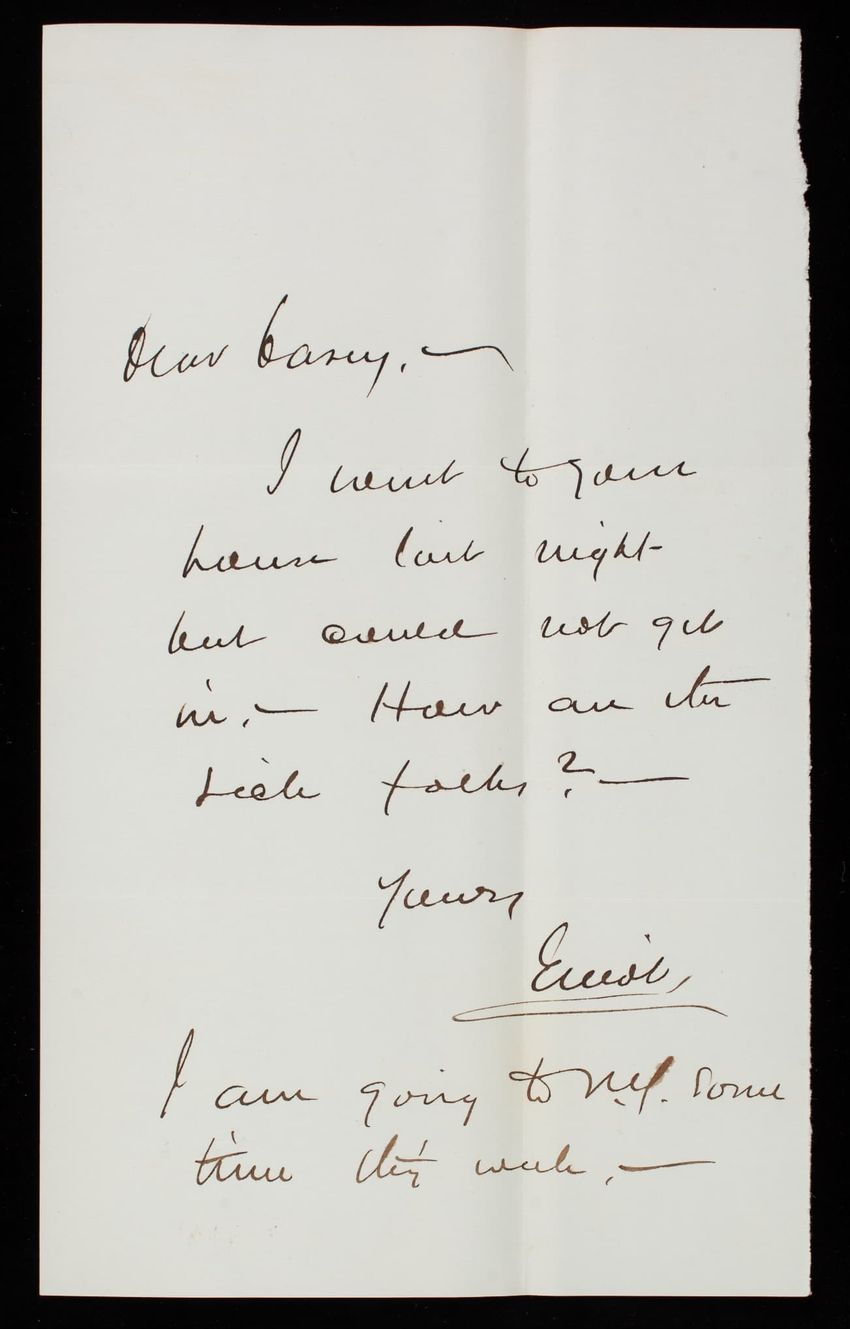 Dear Casey, —
I went to your
house last night
but could not get
in. — How are the
sick folks? —
Yours
I am going to N.Y. some
time this week. —